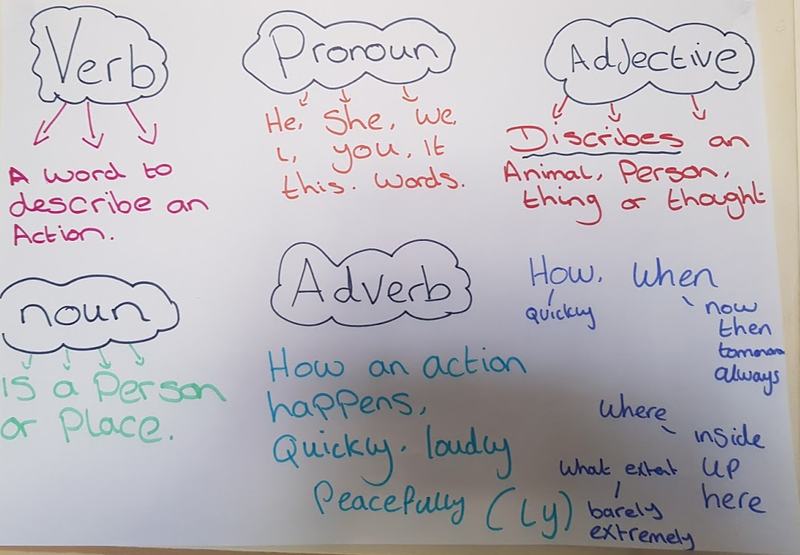 Verb
A word to
describe an
Action.
Pronoun
He, She, we,
I, you, it
this. words.
Adjective
Discribes an
Animal, Person,
thing or thought
noun
is a Person
or Place.
Adverb
How an action
happens,
Quickly, loudly
Peacefully (Ly)
How, when
quickly
now
then
always
where
inside
up
here
what extent
barely
extremely